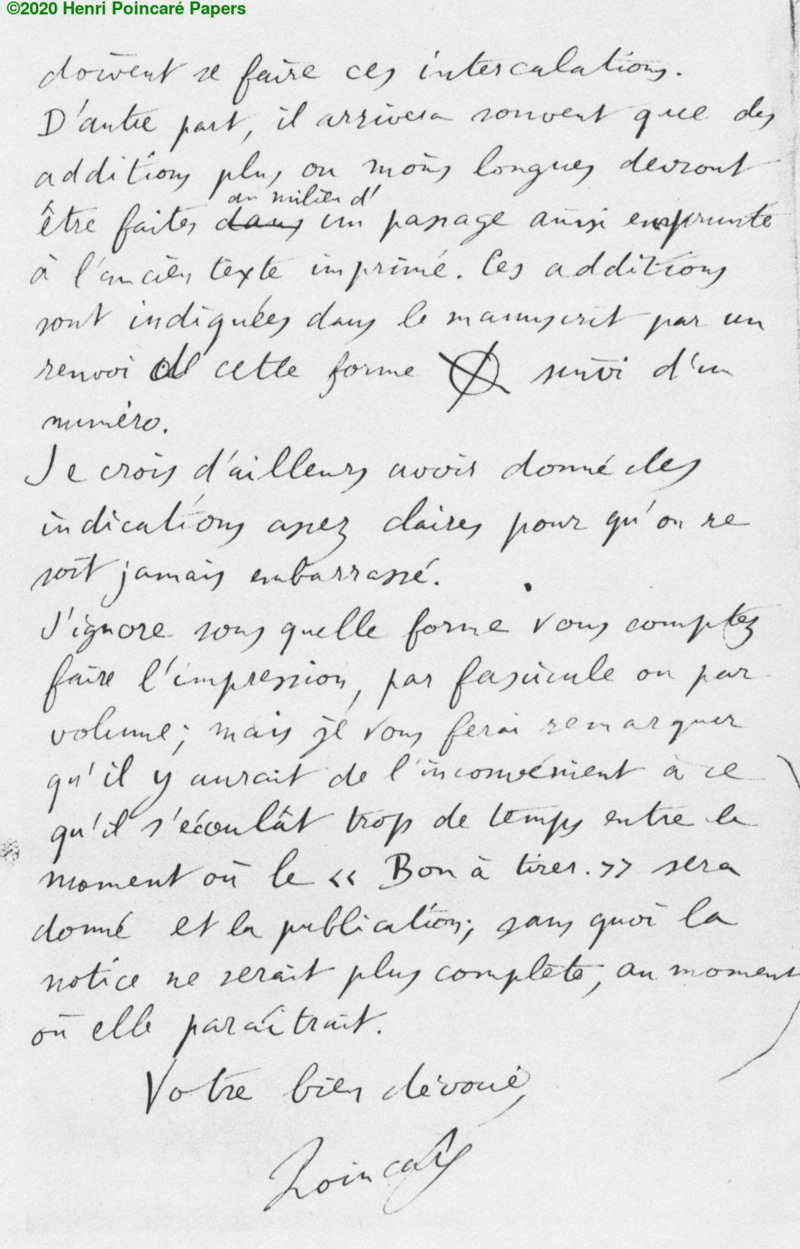 ©2020 Henri Poincaré Papers
doivent se faire ces intercalations.
D'autre part, il arrivera souvent que des
additions plus ou moins longues devront
au milieu d'
être faites dans un passage ainsi emprunté
à l'ancien texte imprimé. Ces additions
sont indiquées dans le manuscrit par un
renvoi de cette forme suivi d'un
numéro.
Je crois d'ailleurs avoir donné des
indications assez claires pour qu'on ne
soit jamais embarrassé.
J'ignore sous quelle forme vous comptez
faire l'impression, par fascicule ou par
volume; mais je vous ferai remarquer
qu'il y aurait de l'inconvénient à ce
qu'il s'écoulât trop de temps entre le
moment où le « Bon à tirer. » sera
donné et la publication; sans quoi la
notice ne serait plus complète, au moment
où elle paraîtrait.
Votre bien dévoué,
Poincaré